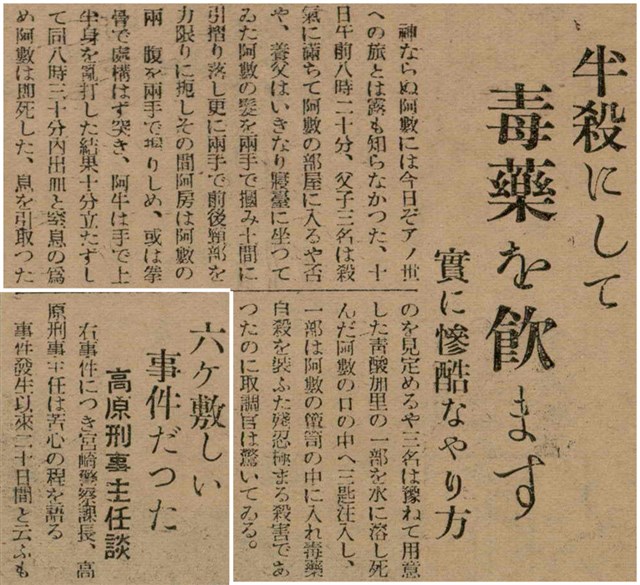 半殺にして
毒藥を飲ます
實に慘酷なやり方
神ならぬ阿數には今日ぞアノ世
への旅とは露も知らなかつた、十
日午前八時二十分、父子三名は殺
氣に滿ちて阿數の部屋に入るや否
や、養父はいきなり寢臺に坐つて
ゐた阿數の髮を兩手で掴み十間に
引摺り落し更に兩手で前後頸部を
力限りに扼しその間阿房は阿數の
兩 腹を兩手で掘りしめ、或は拳
骨で處構はず突き、阿牛は手で上
半身を亂打した結果十分立たずし
て同八時三十分内出血と窒息の爲
め阿數は即死した、息を引取つた
のを見定めるや三名は豫ねて用意
した靑酸加里の一部を水に溶し死
んだ阿數の口の中へ三匙注入し、
一部は阿數の簞笥の中に入れ毒藥
自殺を裝ふた殘忍極まる殺害であ
つたのに取調官は驚いてゐる。
六ケ敷しい
事件だつた
高原刑事主任談
右事件につき宮崎警察課長、高
原刑事主任は苦心の程を語る
事件發生以來二十日間と云ふも